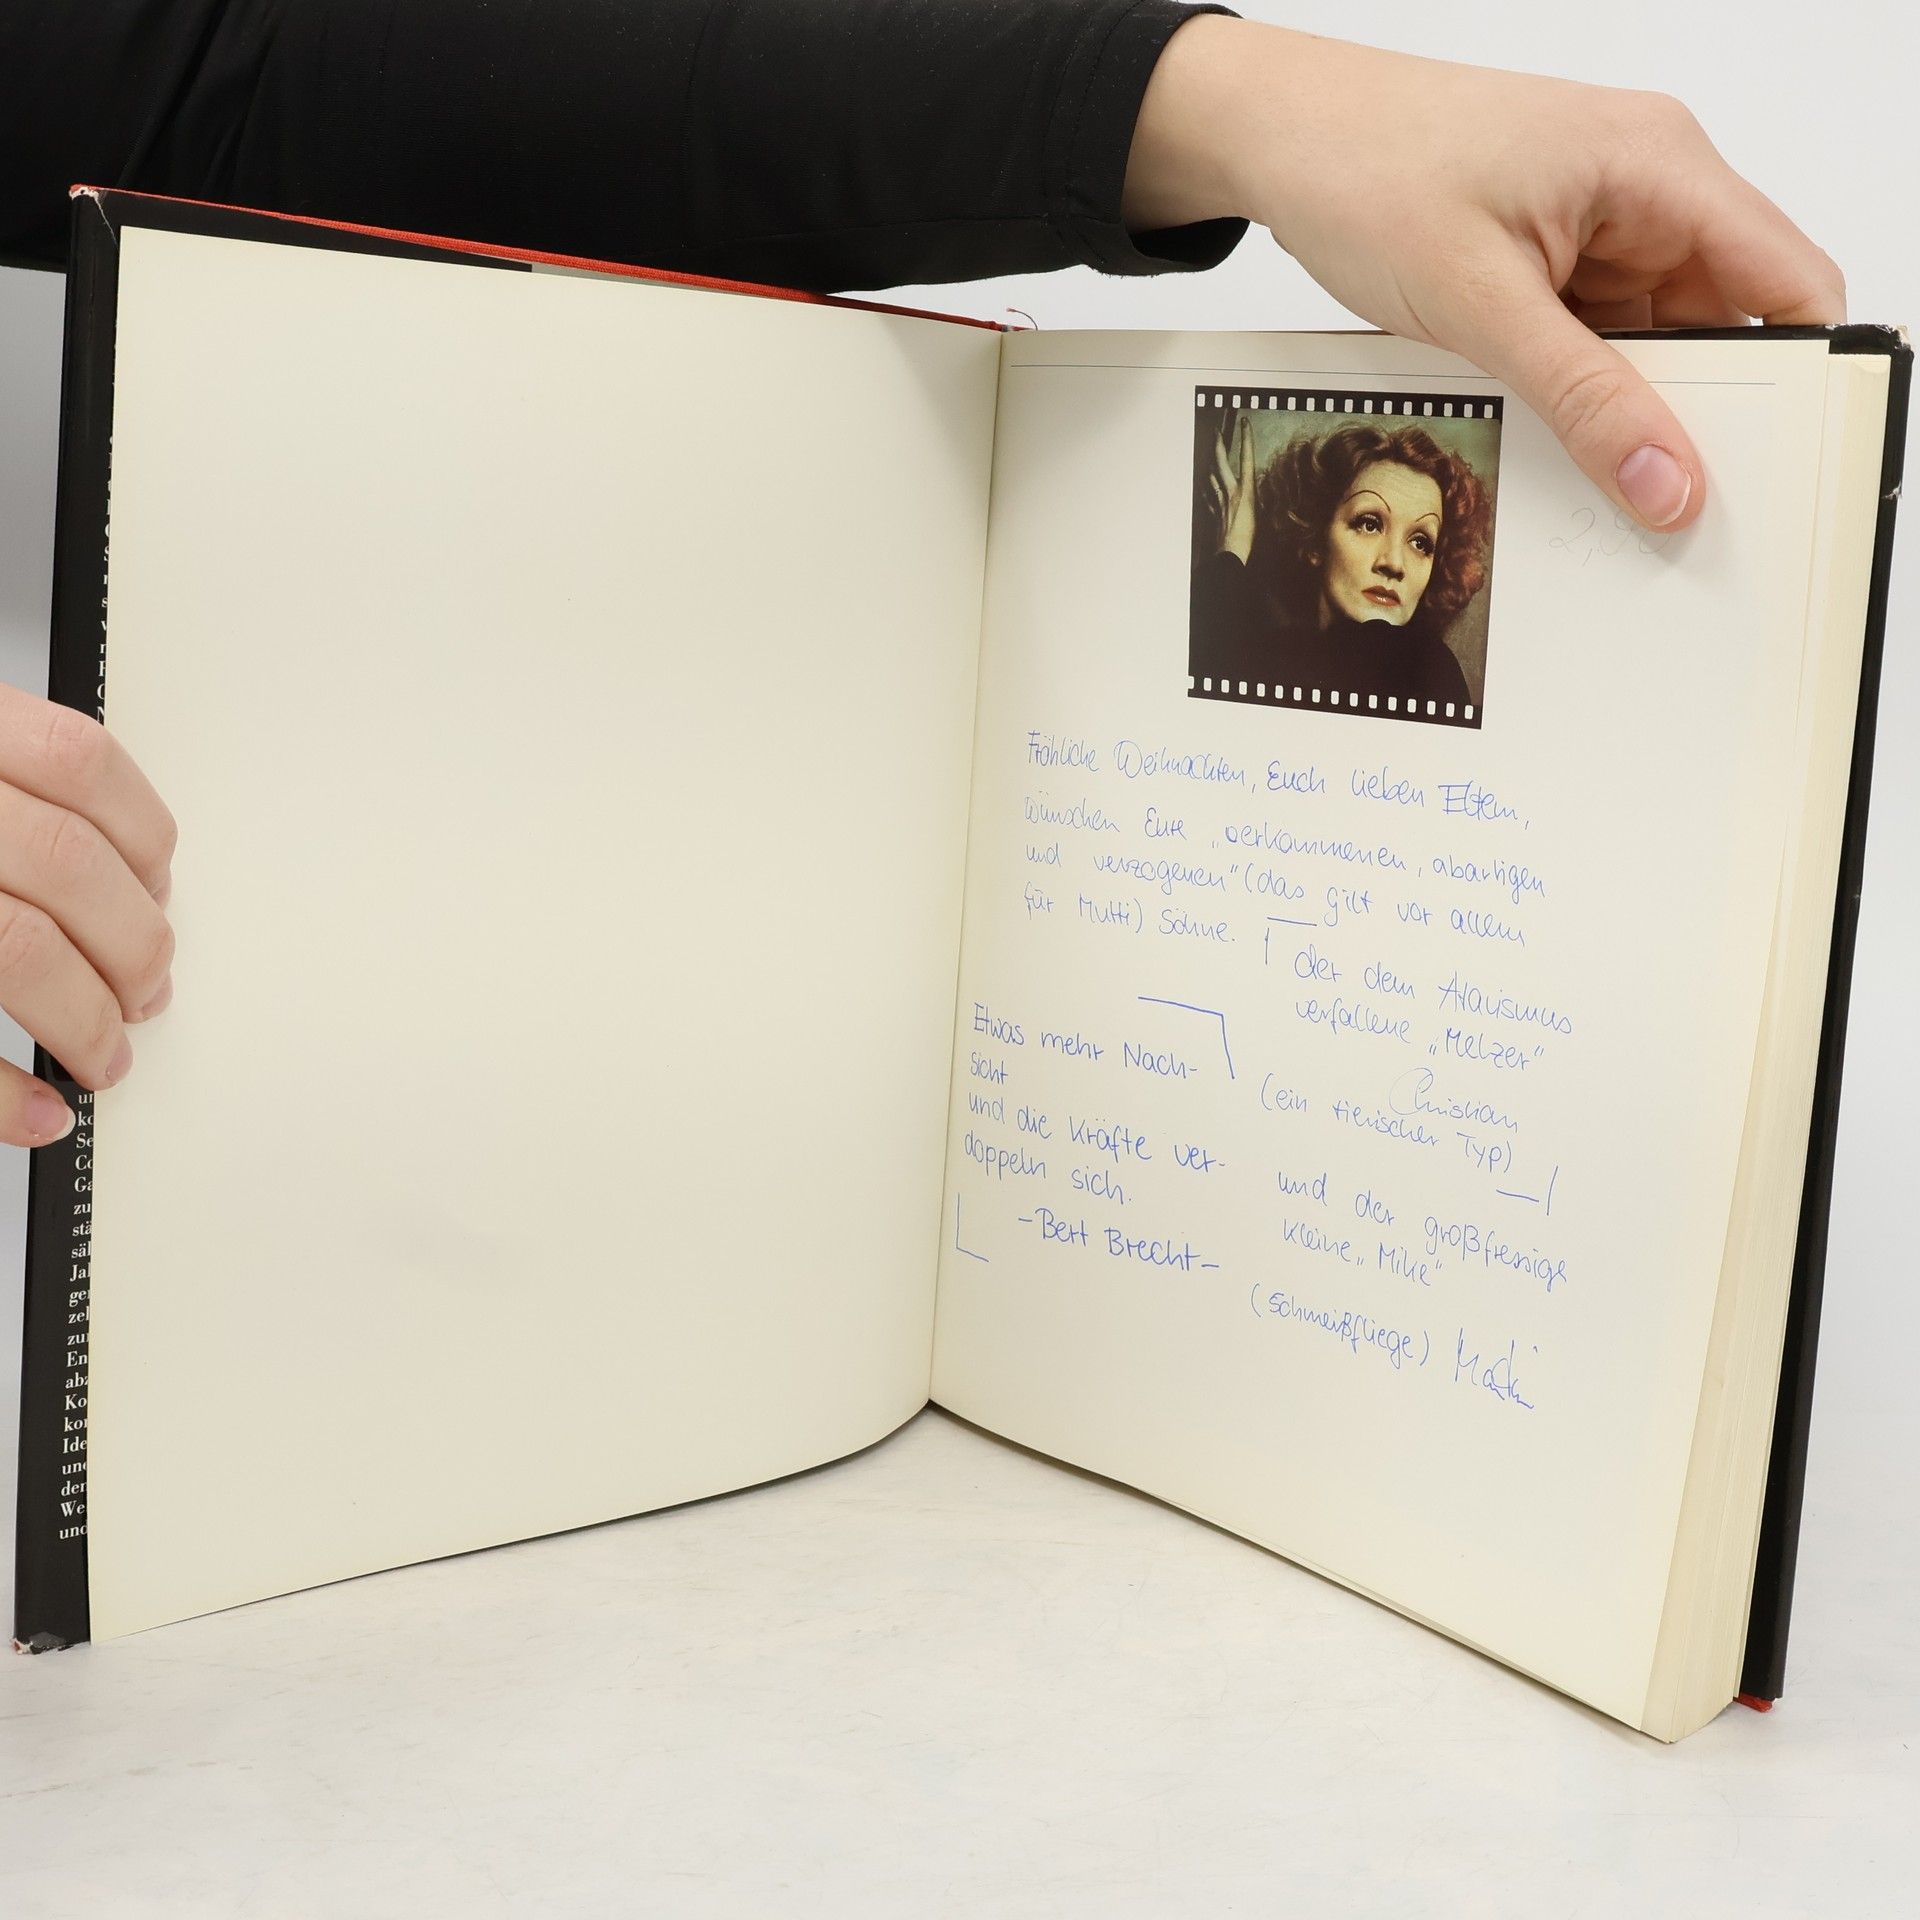 2,90
Fröhliche Weihnachten, Euch lieben Eltern,
wünschen Eure „verkommenen, abartigen
und verzogenen" (das gilt vor allem
für Mutti) Söhne.
der dem Atavismus
verfallene „Melzer"
Christian
(ein tierischer Typ)
und der großfressige
kleine „Mike"
(Schmeißfliege) Martin
Etwas mehr Nach-
sicht
und die Kräfte ver-
doppeln sich.
- Bert Brecht -
un
ko
Se
Co
Ga
zu
stä
säl
Jal
ger
zel
zur
En
abz
Ko
kor
Ide
und
den
We
und